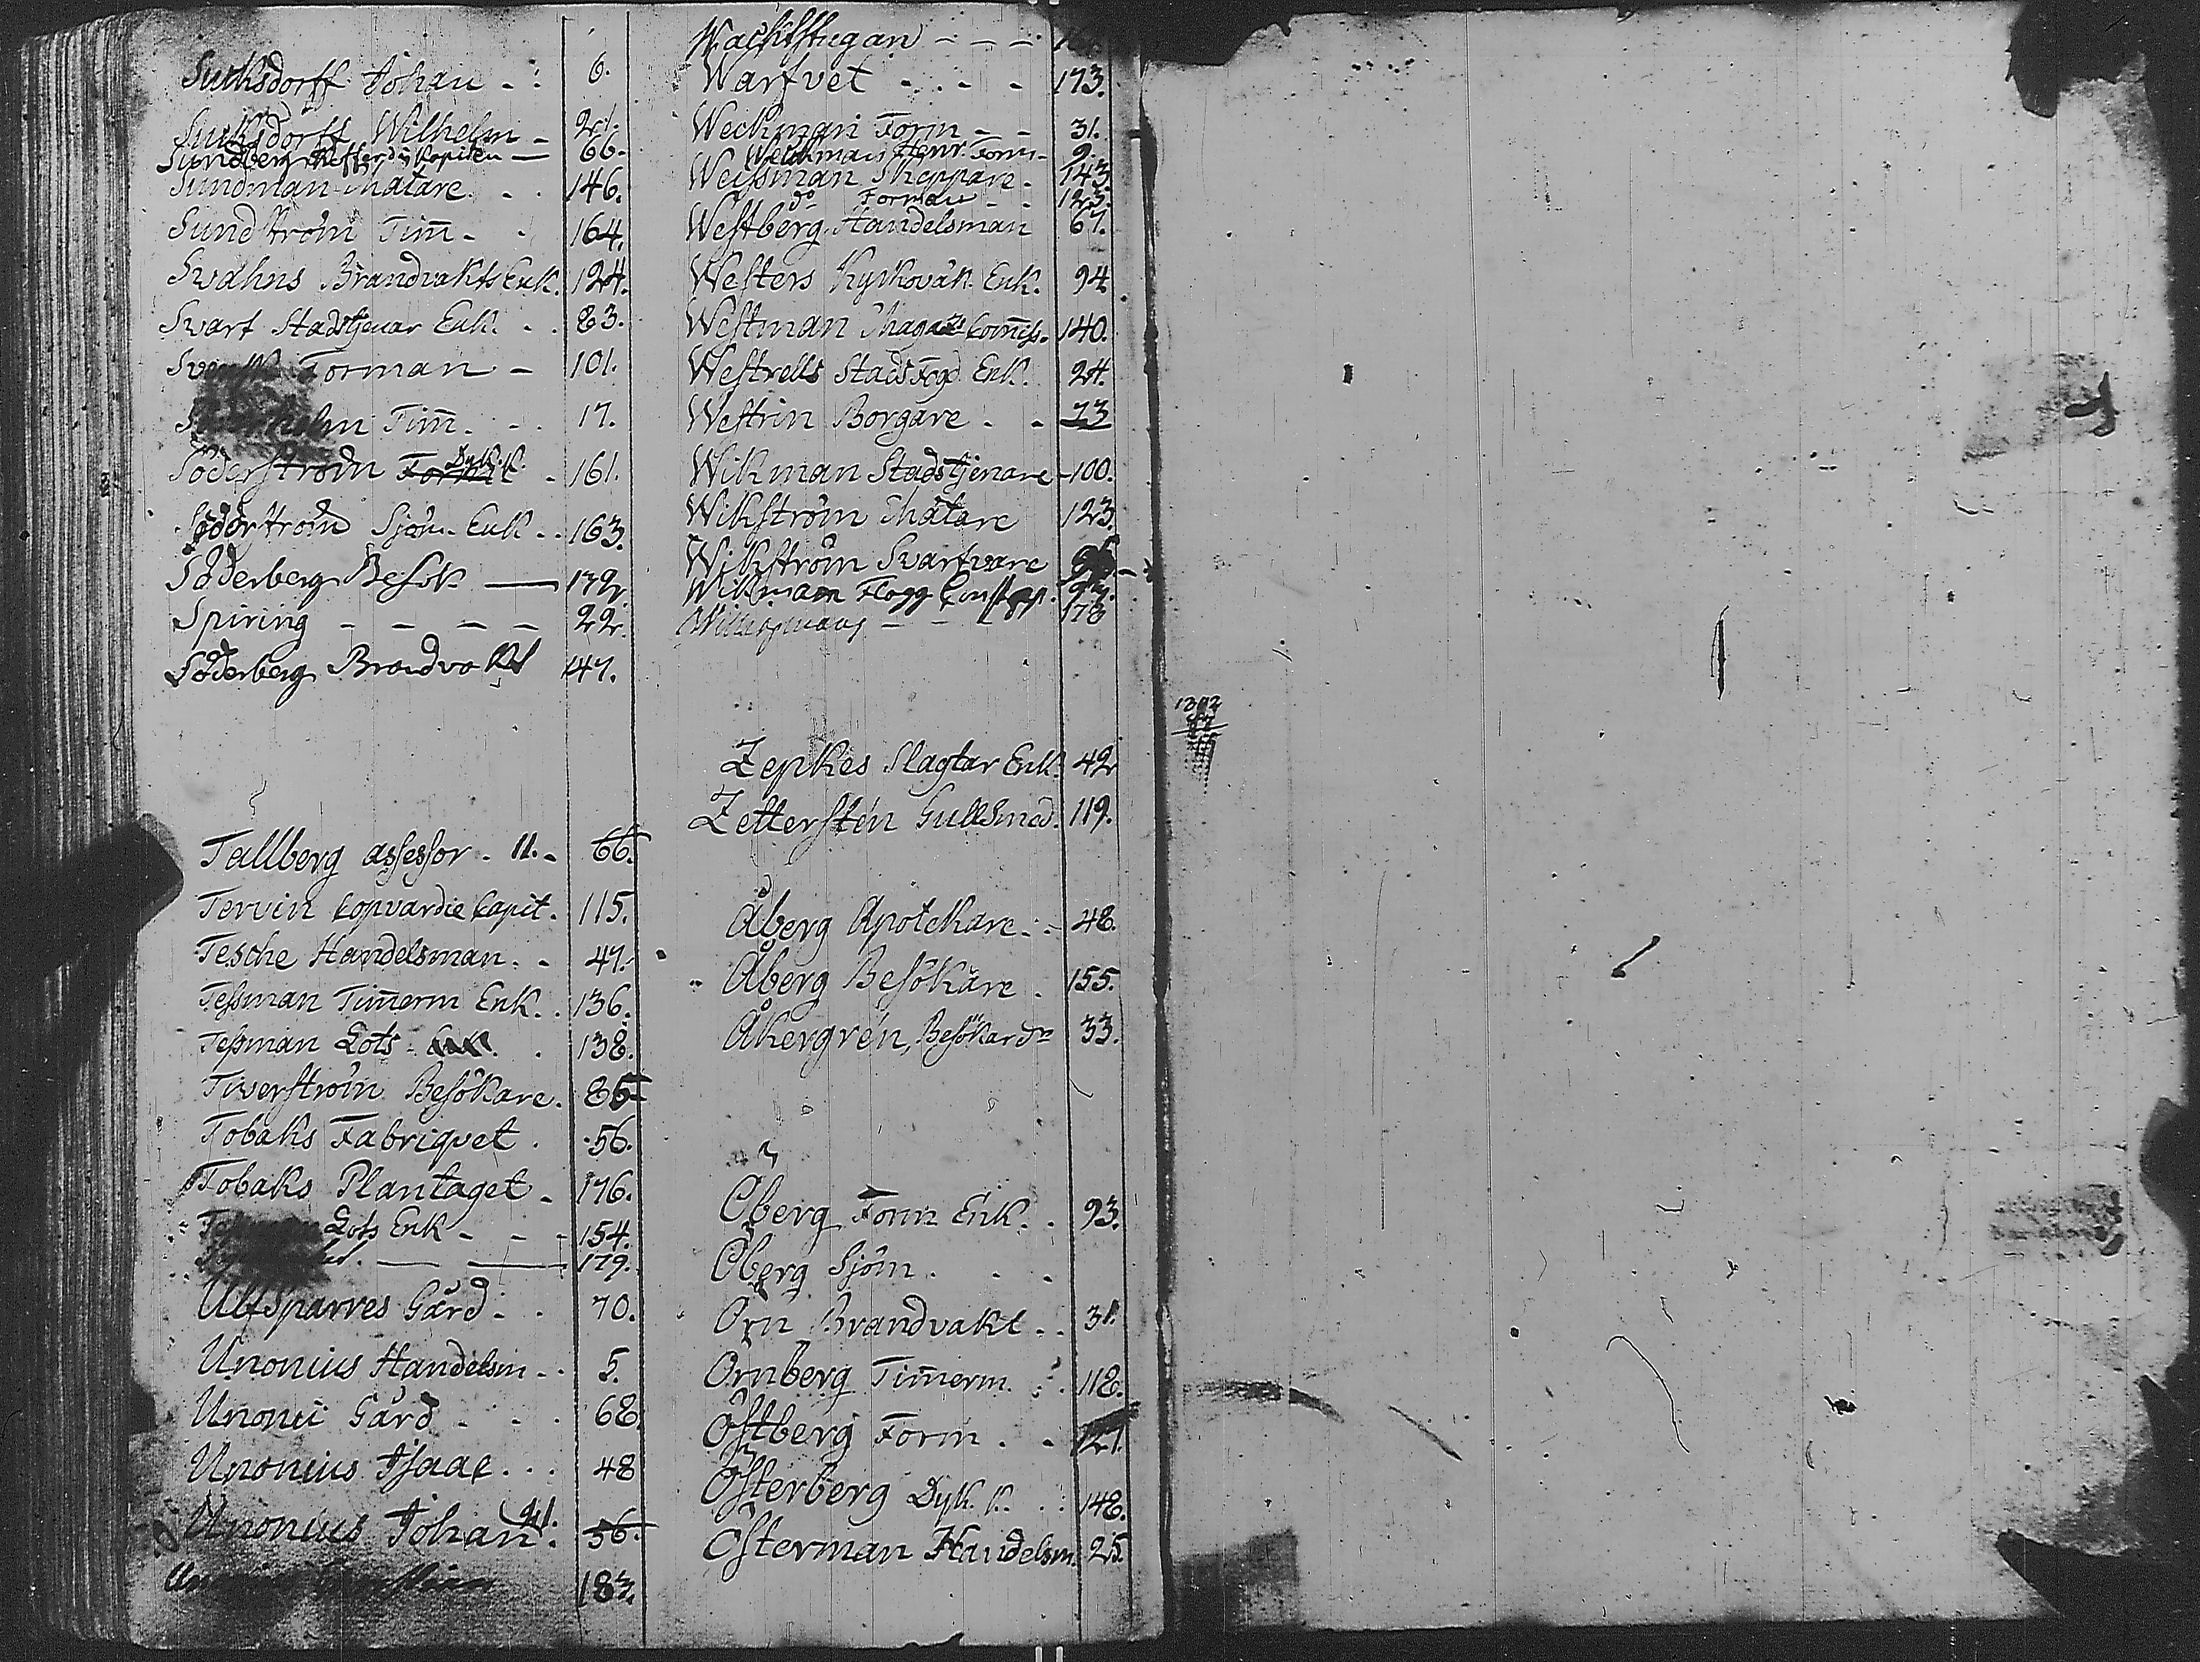 Sucksdorff Johan - . 6.
Sucksdorff Wilhelm - 21.
Sundberg Kofferdi Kapiten — 66.
Sundman Mätare. . . 146.
Sundström Tim̄. . 164.
Swahns Brandvakts Enk. 124.
Svart Stadstjenar Enk. . . 83.
Forman - 101.
Tim̄. . . 17.
Söderström Dyk. K. . 161.
Söderström Sjöm. Enk. . . 163.
Söderberg Besök — 132.
Spiring - - - - 22.
Söderberg Brandvakt 147.
Tallberg assessor . 11. - 66.
Tervin Copvardie Capit. 115.
Tesche Handelsman. . 47.
Tessman Tim̄erm Enk. . 136.
Tessman Lots Enk. . 138.
Tiverström Besökare. 85
Tobaks Fabriquet . 56.
Tobaks Plantaget . 176.
Lots Enk - - - 154.
179.
Ulfsparres Gård . . 70.
Unonius Handelsm . . 5.
Unonii Gård . . . 68
Unonius Isaac . . . 48
Unonius Johan. 41. 56.
183.
Wacktstugan - - -
Warfvet - . - - 173.
Weckman Form - - 31.
Weckman Henr. Form - 9.
Weissman Skeppare. 143
do Forman - - 123.
Westberg Handelsman 67.
Westers Kyrkovak. Enk. 94
Westman Magaz Com̄iss. 140.
Westrells Stads Fogd Enk. 24.
Westrin Borgare . . 73
Wikman Stadstjenare - 100.
Wikström Mätare 123.
Wikström Svarfvare
Wikman Flagg Const 93.
- - 178
Zepkes Slagtar Enk. 42
Zettersten Gullsmed. 119.
Åberg Apotekare. . . 48.
Åberg Besökare . 155.
Åkergren, Besökar 33.
Öberg Form Enk. . 93.
Öberg Sjöm. . .
Örn Brandvakt . . 31.
Örnberg Tim̄erm. . . 118.
Östberg Form . . 127.
Österberg Dyk. K. . . 148.
Österman Handelsm. 25.